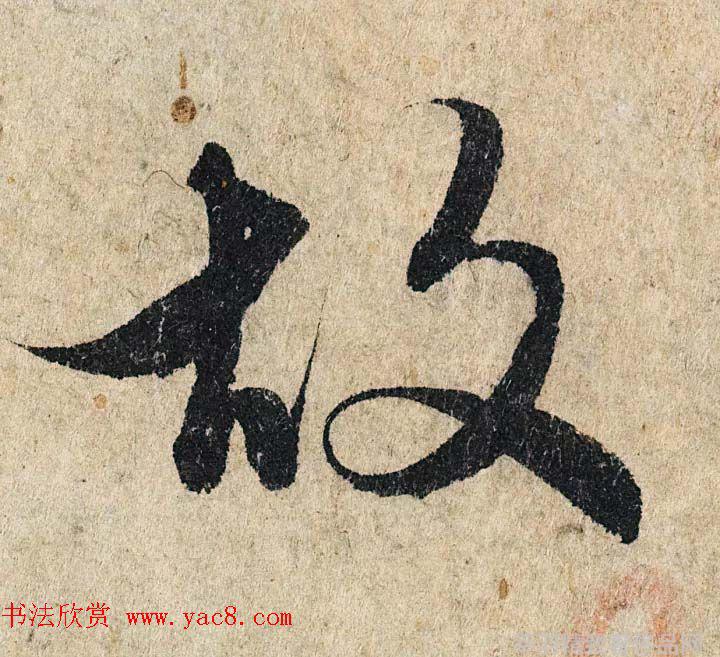 故
书法欣赏 www.yac8.com